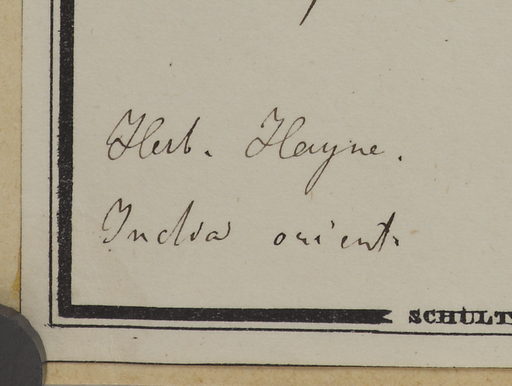 Herb. Heyne.
India orient.
SCHULT